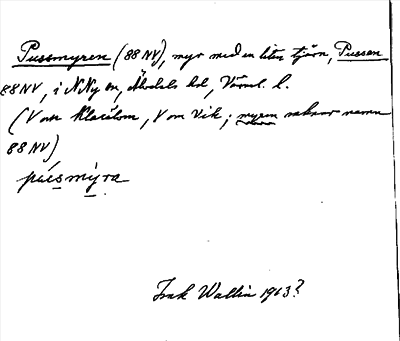 Pussmyren (88 NV), myr med en liten tjärn, Pussen
88 NV, i N Ny sn, Älvdals hd, Värml. l.
(V om Klacktom, V om Vik; myren saknar namn
88 NV)
púsmýra
Wallin 1963?